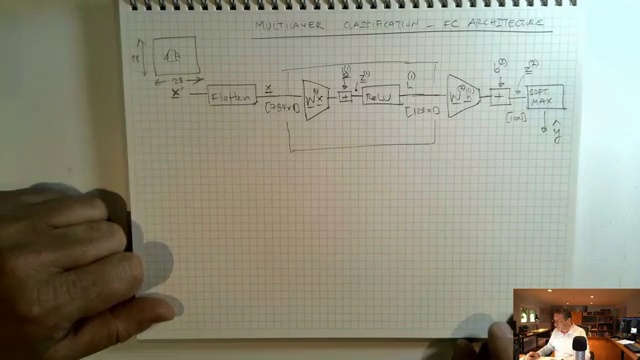 MULTILAYER CLASSIFICATION - FC ARCHITECTURE
28
28
x Flatten x [784x1] W(1) x b(1) + z(1) ReLU h(1) [128x1] W(2) h(1) b(2) + z(2) [10x1] SOFT MAX
ŷ